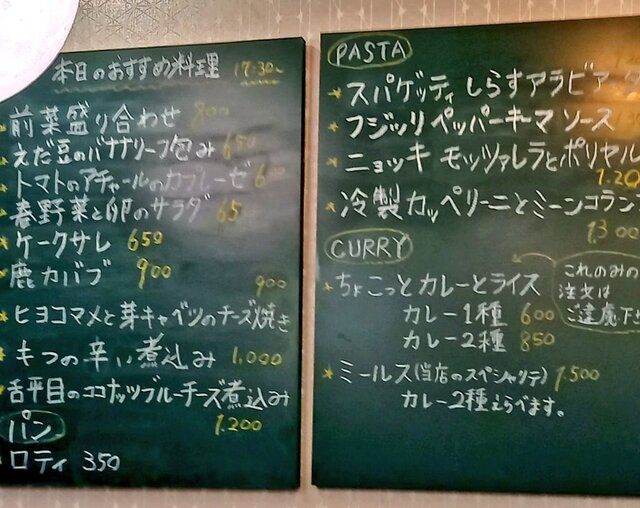 本日のおすすめ料理 17:30~
前菜盛り合わせ 800
えだ豆のバナナリーフ包み 650
トマトのアチャールのカプレーゼ
春野菜と卵のサラダ 65
ケークサレ 650
鹿カバブ 900
900
ヒヨコマメと芽キャベツのチーズ焼き
もつの辛い煮込み 1,000
舌平目のココナッツブルーチーズ煮込み
1.200
パン
ロティ 350
PASTA
スパゲッティ しらすアラビアータ
フジッリ ペッパーキーマ ソース
ニョッキ モッツァレラとポリヤル
1.20
冷製カッペリーニとミーンコランブ
1300
CURRY
ちょこっとカレーとライス
カレー1種 600
カレー2種 850
これのみの
注文は
ご遠慮下
ミールス(当店のスペシャリテ) 1.500
カレー2種えらべます。